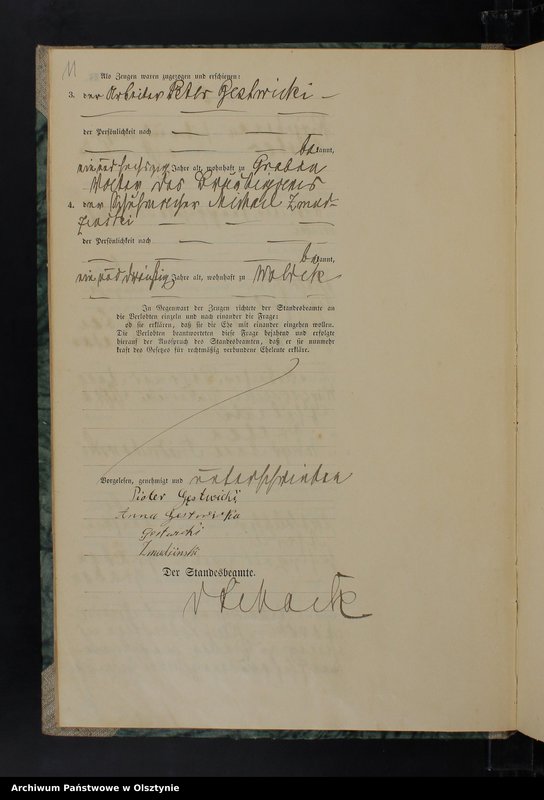 11
Als Zeugen waren zugezogen und erschienen:
3. der Arbeiter Peter Gestwicki
der Persönlichkeit nach
bekannt,
ein und sechszig Jahre alt, wohnhaft zu Graban
4. der Michael Zmud-
zinski
der Persönlichkeit nach
bekannt,
ein und dreißig Jahre alt, wohnhaft zu
In Gegenwart der Zeugen richtete der Standesbeamte an
die Verlobten einzeln und nach einander die Frage:
ob sie erklären, daß sie die Ehe mit einander eingehen wollen.
Die Verlobten beantworteten diese Frage bejahend und erfolgte
hierauf der Ausspruch des Standesbeamten, daß er sie nunmehr
kraft des Gesetzes für rechtmäßig verbundene Eheleute erkläre.
Vorgelesen, genehmigt und unterschrieben
Pioter Gestwicki
Anna Gestwicka
Gestwicki
Zmudzinski
Der Standesbeamte.
Archiwum Państwowe w Olsztynie